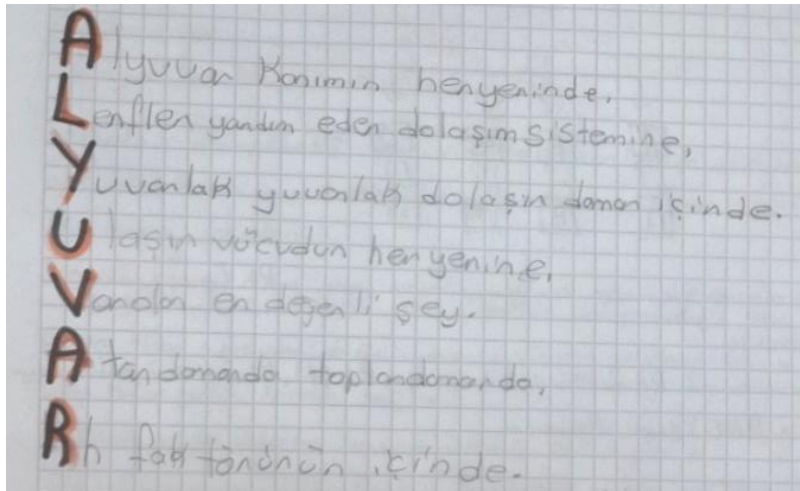 Alyuvar Kanımın heryerinde,
Lenfler yardım eder dolaşım sistemine,
Yuvarlak yuvarlak dolaşır damar içinde.
Ulaşır vücudun her yerine,
Varolan en değerli şey.
Atar damarda toplardamarda,
Rh faktörünün içinde.